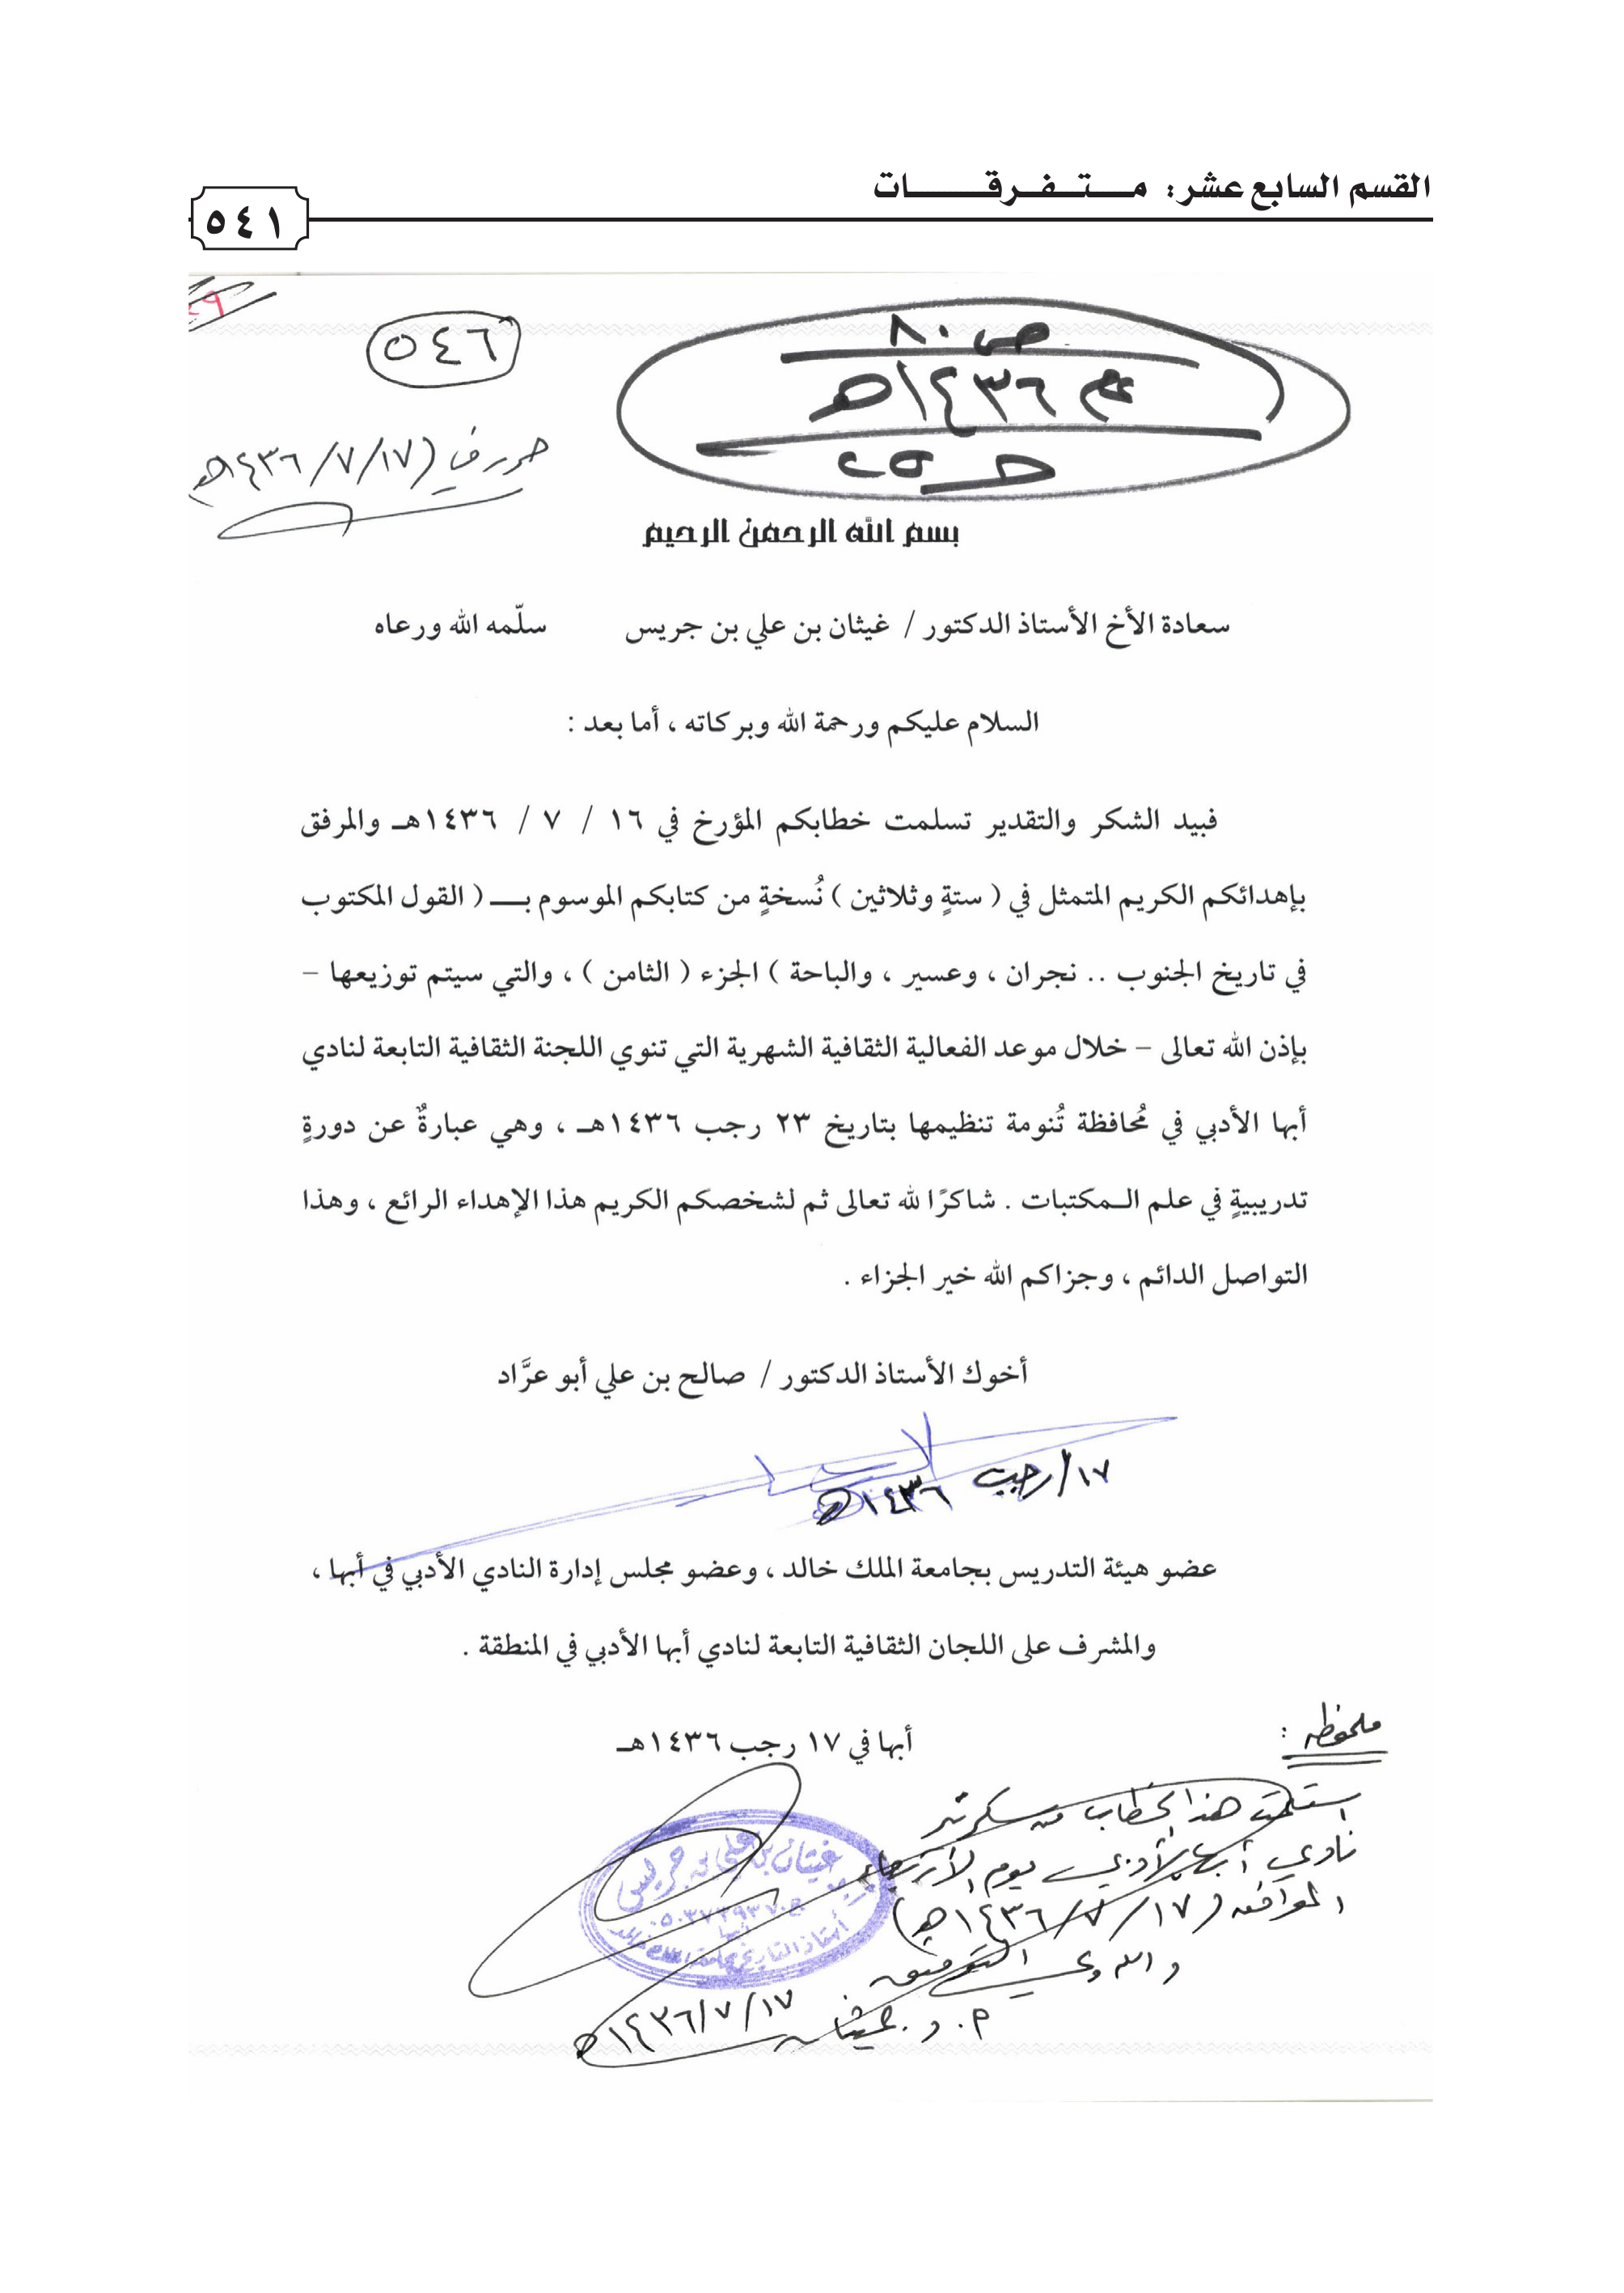 القسم السابع عشر: متفرقات
٥٤١
ص ٨٠
١٤٣٦هـ
٥٤٦
حرر في (١٧/٧/١٤٣٦هـ)
بسم الله الرحمن الرحيم
سعادة الأخ الأستاذ الدكتور / غيثان بن علي بن جريس سلّمه الله ورعاه
السلام عليكم ورحمة الله وبركاته ، أما بعد :
فبيد الشكر والتقدير تسلمت خطابكم المؤرخ في ١٦ / ٧ / ١٤٣٦هـ والمرفق
بإهدائكم الكريم المتمثل في ( ستةٍ وثلاثين ) نُسخةٍ من كتابكم الموسوم بـــ ( القول المكتوب
في تاريخ الجنوب .. نجران ، وعسير ، والباحة ) الجزء ( الثامن ) ، والتي سيتم توزيعها –
بإذن الله تعالى – خلال موعد الفعالية الثقافية الشهرية التي تنوي اللجنة الثقافية التابعة لنادي
أبها الأدبي في مُحافظة تُنومة تنظيمها بتاريخ ٢٣ رجب ١٤٣٦هـ ، وهي عبارةٌ عن دورةٍ
تدريبيةٍ في علم الـمكتبات . شاكرًا لله تعالى ثم لشخصكم الكريم هذا الإهداء الرائع ، وهذا
التواصل الدائم ، وجزاكم الله خير الجزاء .
أخوك الأستاذ الدكتور / صالح بن علي أبو عرَّاد
١٧/رجب ١٤٣٦هـ
عضو هيئة التدريس بجامعة الملك خالد ، وعضو مجلس إدارة النادي الأدبي في أبها ،
والمشرف على اللجان الثقافية التابعة لنادي أبها الأدبي في المنطقة .
أبها في ١٧ رجب ١٤٣٦هـ
ملحوظه :
استلمت هذا الخطاب من سكرتير
نادي أبها الأدبي يوم الأربعاء
الموافق (١٧/٧/١٤٣٦هـ)
والله ولي التوفيق
غيثان
١٧/٧/١٤٣٦هـ
غيثان بن علي بن جريس
أستاذ التاريخ بجامعة الملك خالد
أبها